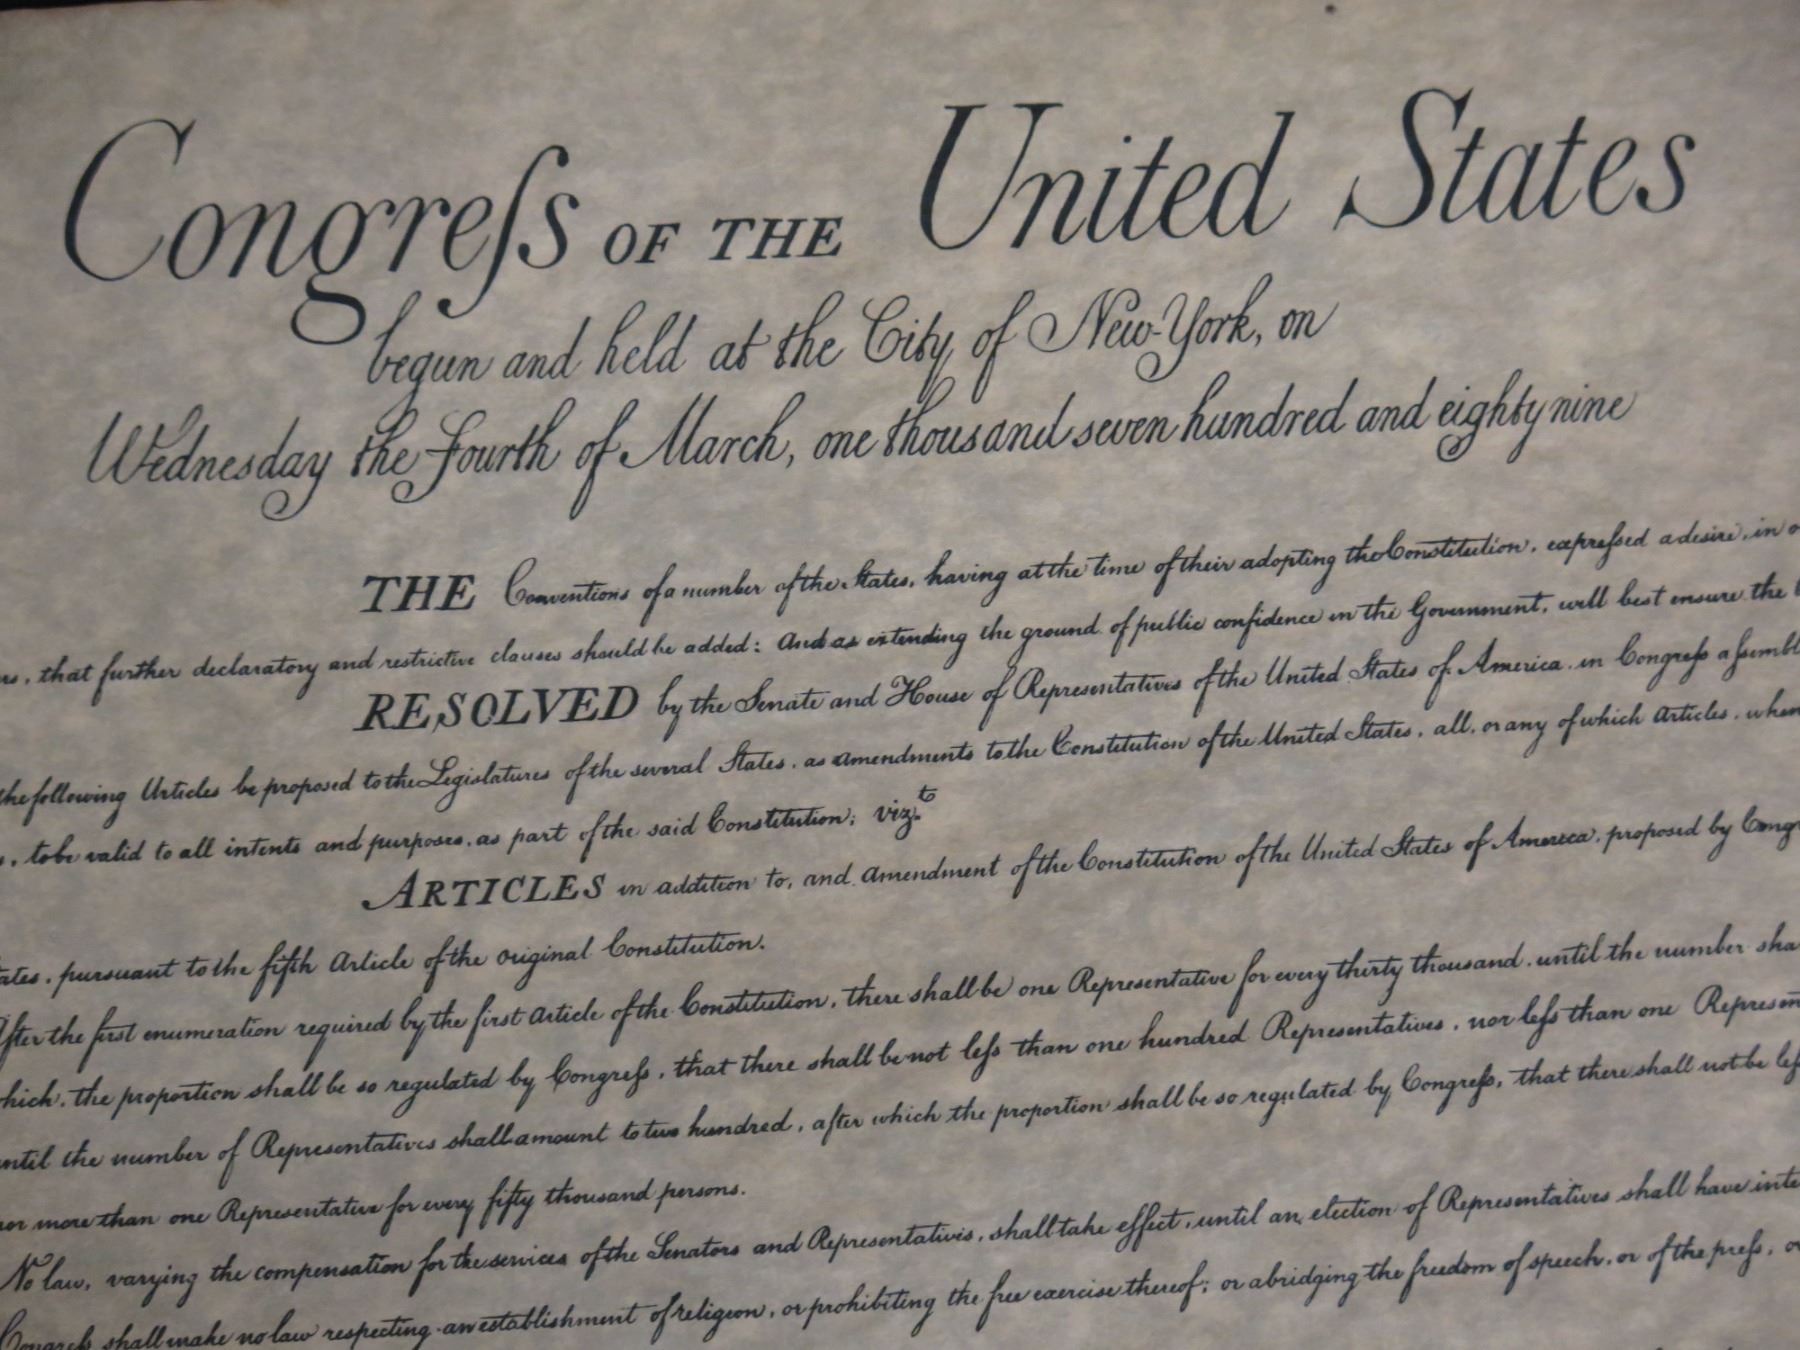 Congreſs OF THE United States
begun and held at the City of New-York, on
Wednesday the fourth of March, one thousand seven hundred and eighty nine
THE Conventions of a number of the States, having at the time of their adopting the Constitution, expreſsed a desire, in
that further declaratory and restrictive clauses should be added: And as extending the ground of public confidence in the Government, will best ensure the
RESOLVED by the Senate and House of Representatives of the United States of America, in Congreſs aſsembl
the following Articles be proposed to the Legislatures of the several States, as amendments to the Constitution of the United States, all, or any of which Articles, when
, to be valid to all intents and purposes, as part of the said Constitution; vizt.
ARTICLES in addition to, and amendment of the Constitution of the United States of America, proposed by Cong
ates, pursuant to the fifth Article of the original Constitution.
After the first enumeration required by the first Article of the Constitution, there shall be one Representative for every thirty thousand, until the number sha
hich, the proportion shall be so regulated by Congreſs, that there shall be not leſs than one hundred Representatives, nor leſs than one Represen
until the number of Representatives shall amount to two hundred, after which the proportion shall be so regulated by Congreſs, that there shall not be leſ
nor more than one Representative for every fifty thousand persons.
No law, varying the compensation for the services of the Senators and Representatives, shall take effect, until an election of Representatives shall have inte
Congreſs shall make no law respecting an establishment of religion, or prohibiting the free exercise thereof; or abridging the freedom of speech, or of the preſs, o